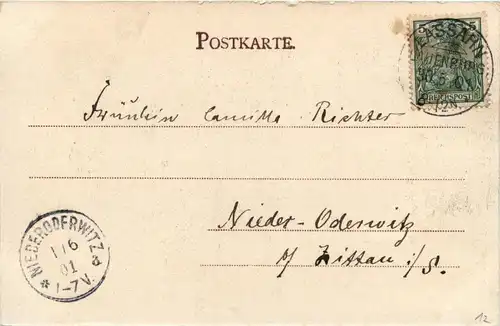 POSTKARTE.
LASSAHN
LAUENBURG
5
REICHSPOST
Fräulein Camilla Richter
Nieder-Oderwitz
b/ Zittau i/S.
NIEDERODERWITZ
1/6
01
* 1-7V. a
12